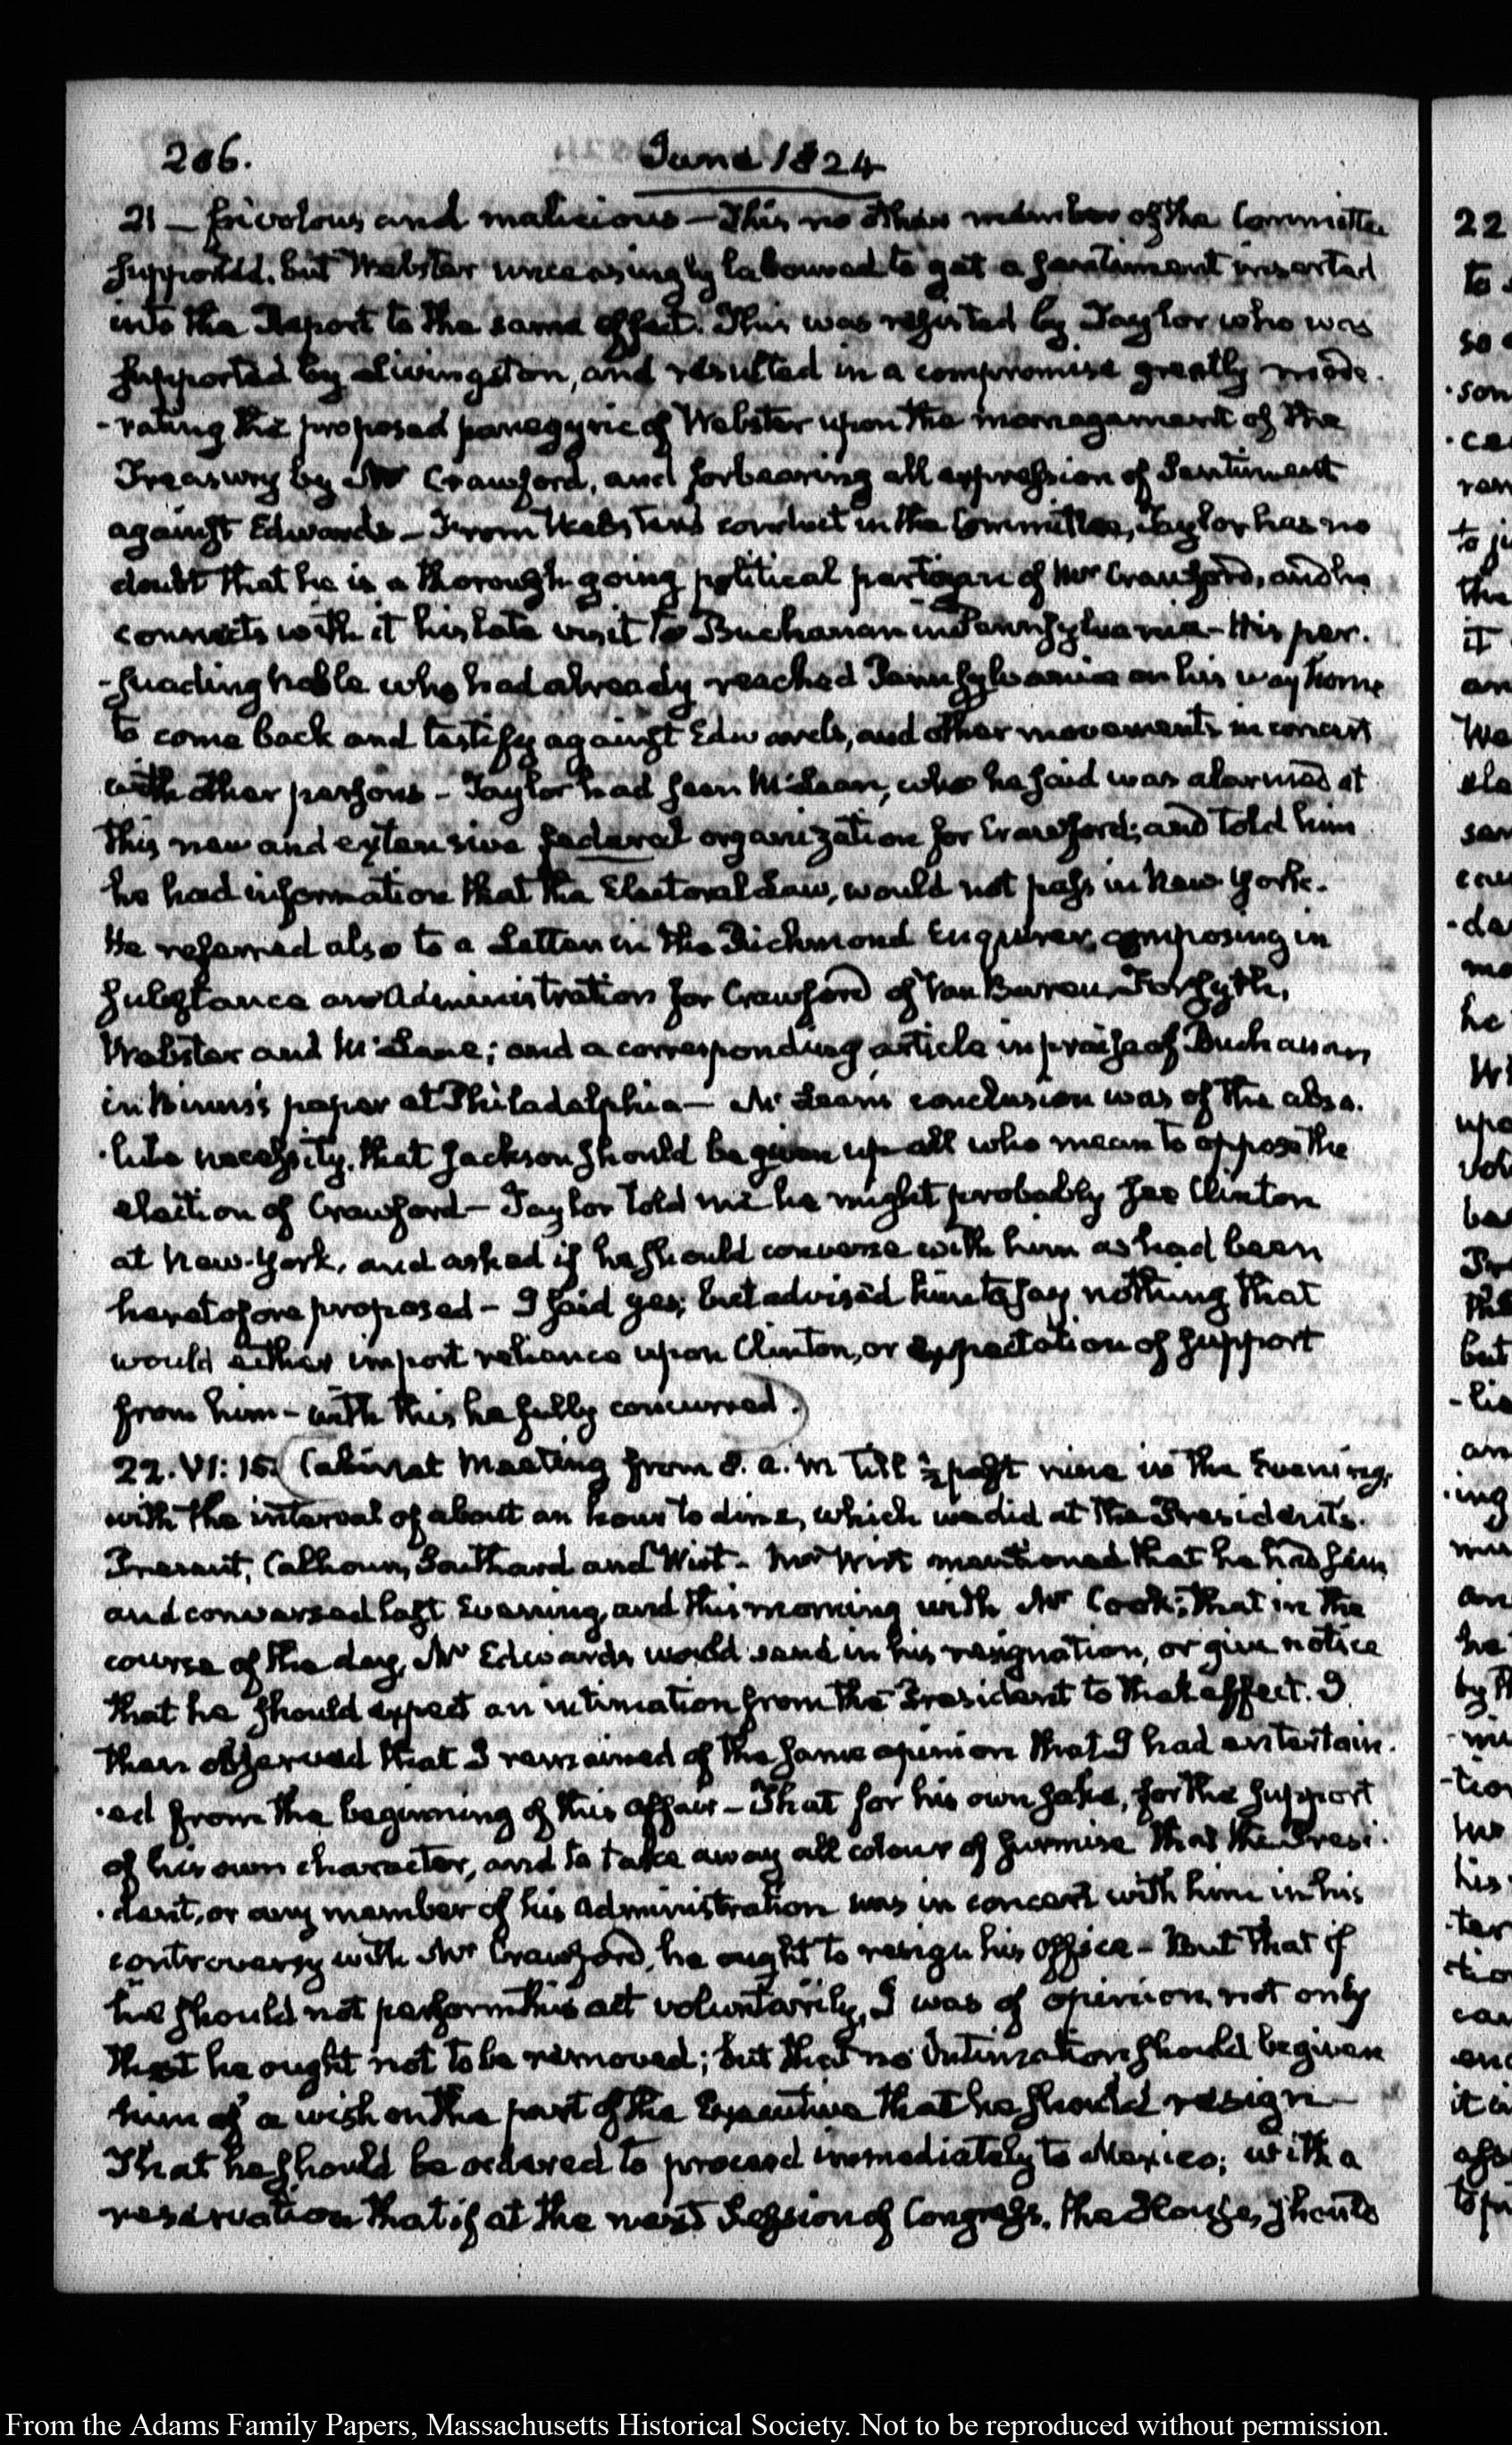 206.
June 1824
21 — frivolous and malicious — This no other member of the Committee
supported. but Webster unceasingly laboured to get a sentiment inserted
into the Report to the same effect. This was resisted by Taylor who was
supported by Livingston, and resulted in a compromise greatly mode-
-rating the proposed panegyric of Webster upon the management of the
Treasury by Mr Crawford, and forbearing all expression of Sentiment
against Edwards — From Websters conduct in the Committee, Taylor has no
doubt that he is a thorough-going political partizan of Mr Crawford, and he
connects with it his late visit to Buchanan in Pennsylvania — His per-
-suading Noble who had already reached Pennsylvania on his way home
to come back and testify against Edwards, and other movements in concert
with other persons — Taylor had seen McLean, who he said was alarmed at
this new and extensive federal organization for Crawford; and told him
he had information that the Electoral Law, would not pass in New York.
He referred also to a Letter in the Richmond Enquirer, composing in
substance an Administration for Crawford of Van Buren, Forsyth,
Webster and McLane; and a corresponding article in praise of Buchanan
in Binns's paper at Philadelphia — McLean's conclusion was of the abso-
-lute necessity. that Jackson should be given up all who mean to oppose the
election of Crawford — Taylor told me he might probably see Clinton
at New-York, and asked if he should converse with him as had been
heretofore proposed — I said yes; but advised him to say nothing that
would either import reliance upon Clinton, or expectation of support
from him — with this he fully concurred.)
22. VI: 15. (Cabinet Meeting from 8. a. m till ½ past nine in the Evening,
with the interval of about an hour to dine, which we did at the President's.
Present, Calhoun, Southard and Wirt — Mr Wirt mentioned that he had seen
and conversed last Evening, and this morning with Mr Cook; that in the
course of the day, Mr Edwards would send in his resignation, or give notice
that he should expect an intimation from the President to that effect. I
then observed that I remained of the same opinion that I had entertain-
-ed from the beginning of this affair — That for his own sake, for the support
of his own character, and to take away all colour of surmise that the Presi-
-dent, or any member of his Administration was in concert with him in his
controversy with Mr Crawford, he ought to resign his Office — But that if
he should not perform this act voluntarily, I was of opinion, not only
that he ought not to be removed; but that no Intimation should be given
him of a wish on the part of the Executive that he should resign —
That he should be ordered to proceed immediately to Mexico; with a
reservation that if at the next Session of Congress, the House, should
22
to
so
son
ce
the
it
an
We
he
but
an
ing
by
his
From the Adams Family Papers, Massachusetts Historical Society. Not to be reproduced without permission.